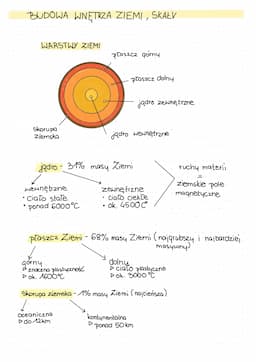 BUDOWA WNĘTRZA ZIEMI, SKAŁY
WARSTWY ZIEMI
płaszcz górny
płaszcz dolny
jądro zewnętrzne
jądro wewnętrzne
skorupa
ziemska
jądro - 31% masy Ziemi
wewnętrzne
• ciało stałe
• ponad 6000°C
zewnętrzne
• ciało ciekłe
• ok. 4500°C
ruchy materii
=
ziemskie pole
magnetyczne
płaszcz Ziemi - 68% masy Ziemi (najgrubszy i najbardziej
masywny)
górny
▷ znaczna plastyczność
▷ ok. 1600°C
dolny
▷ ciało plastyczne
▷ ok. 3000°C
skorupa ziemska - 1% masy Ziemi (najcieńsza)
oceaniczna
▷ do 12km
kontynentalna
▷ ponad 50km